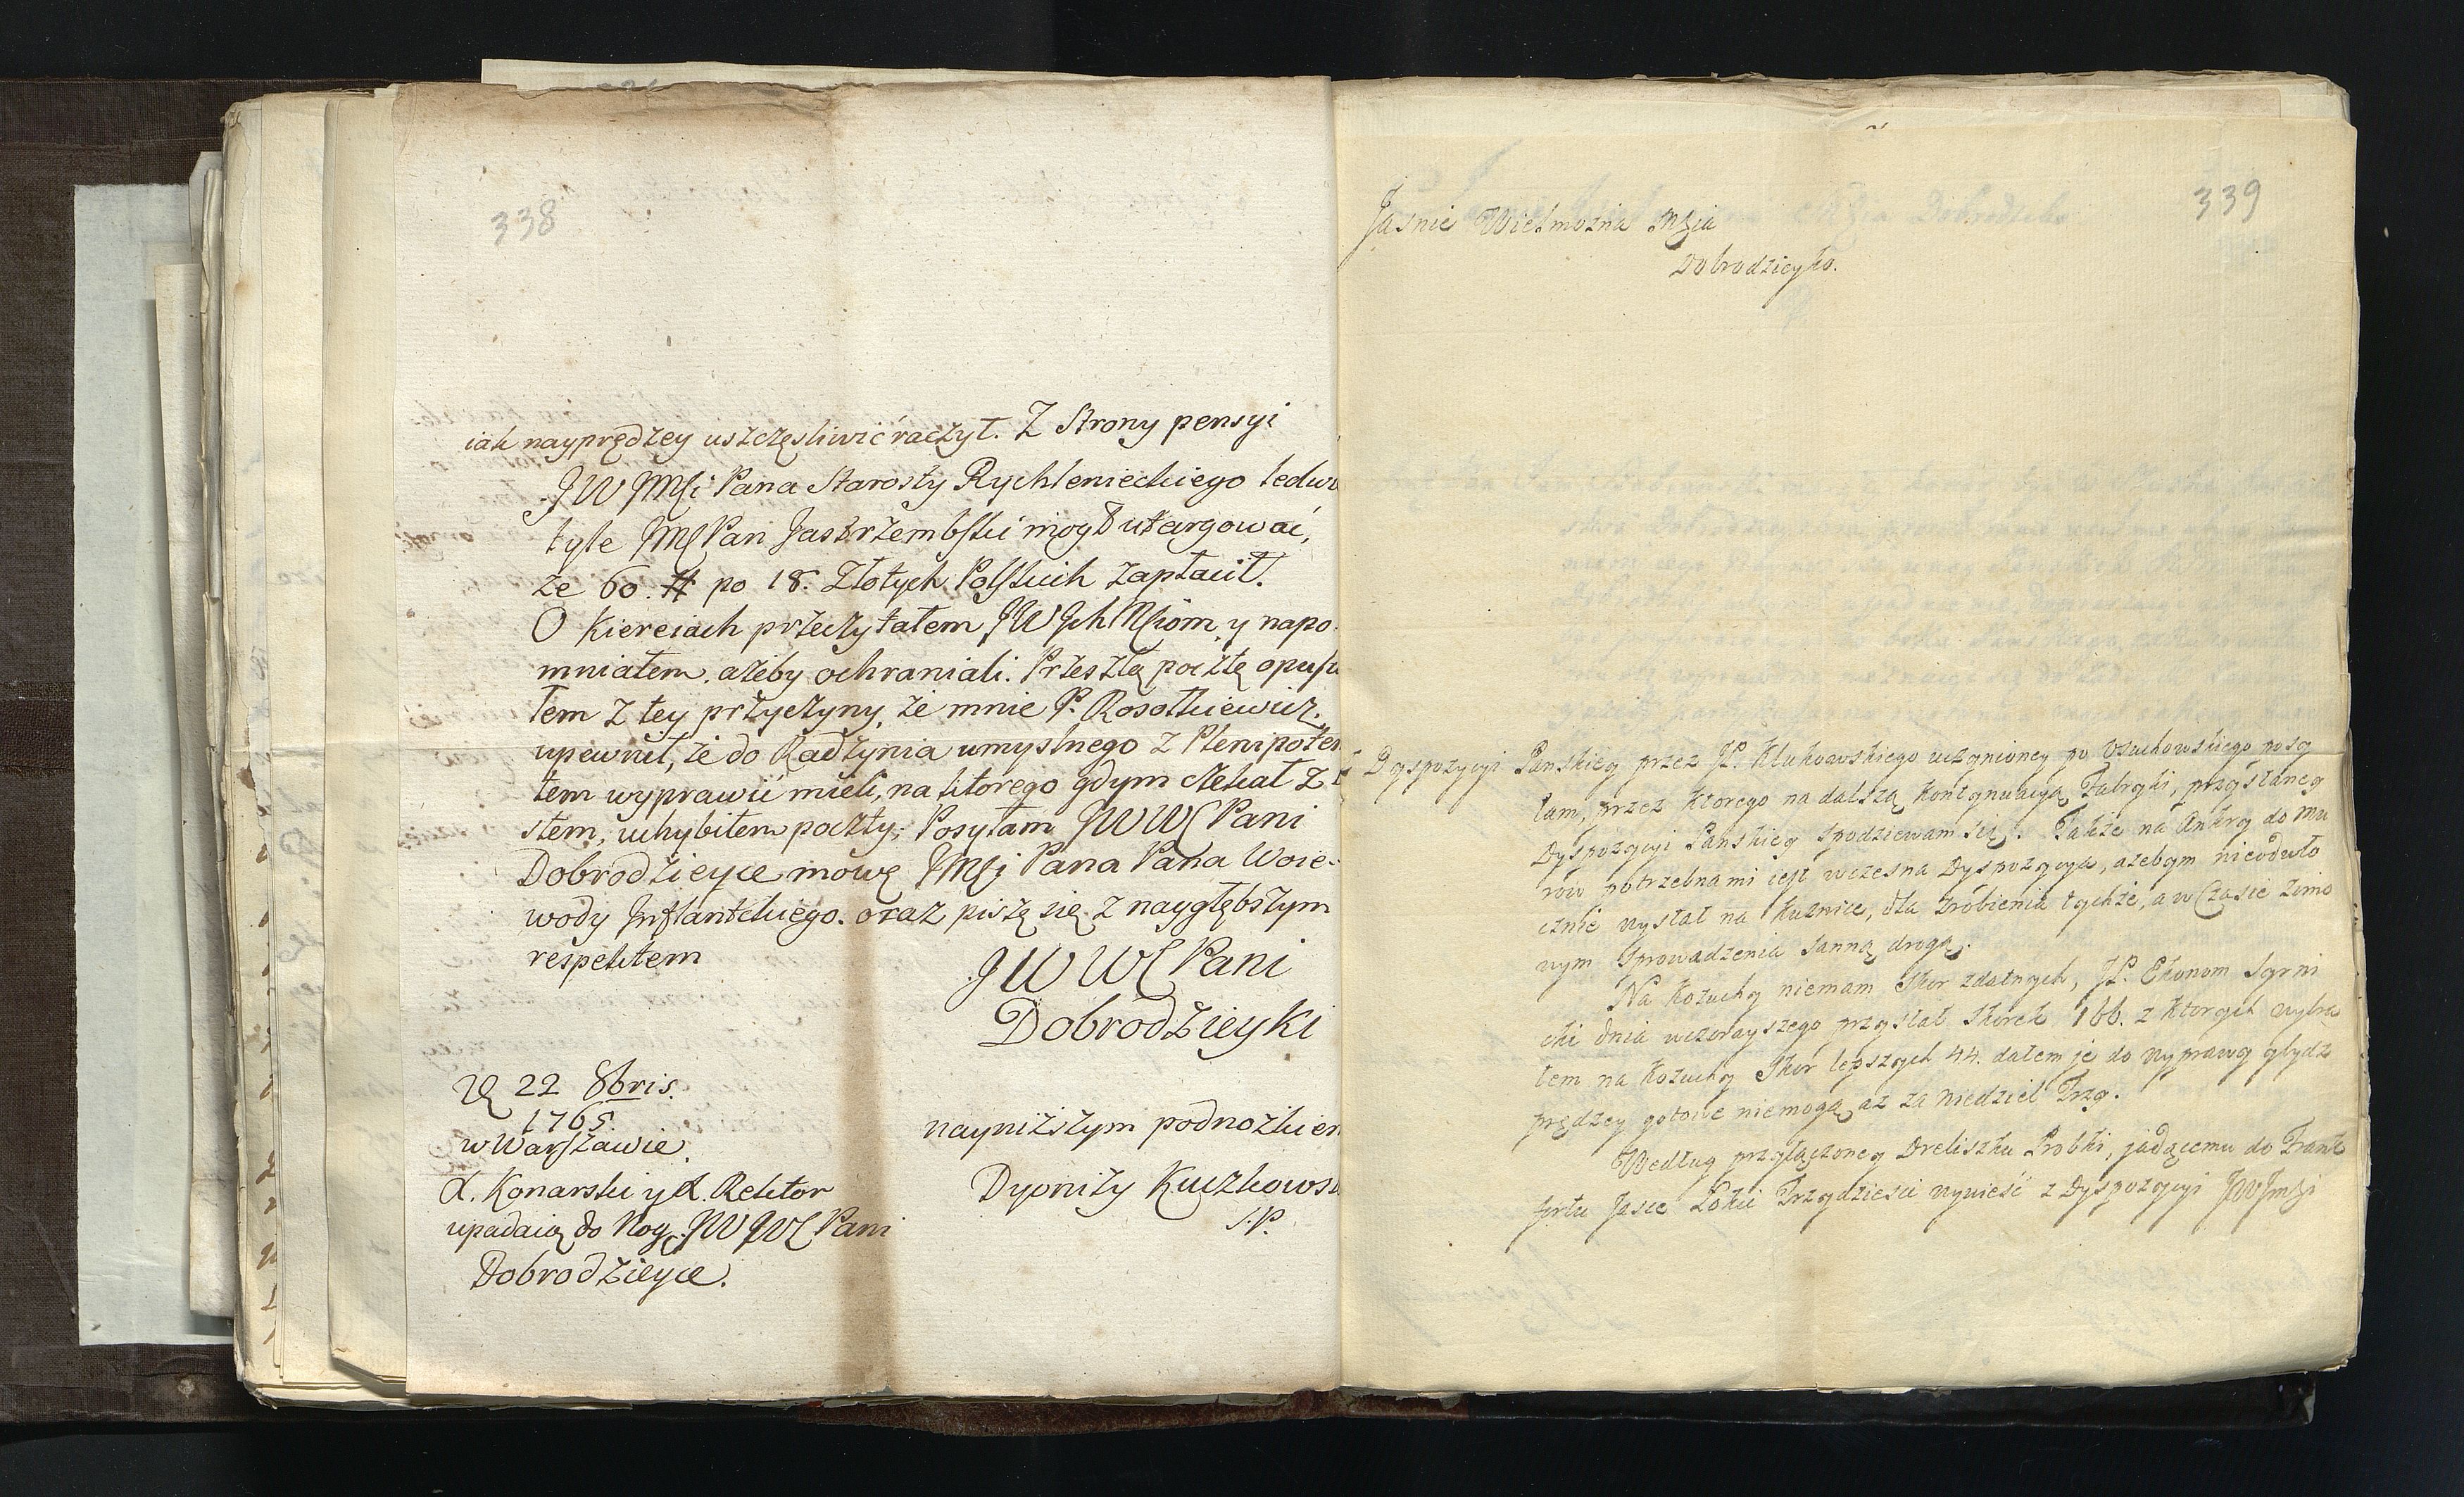 338
iak nayprędzey uszczęsliwić raczył. Z Strony pensyi
JW JMſi Pana Starosty Rychleniechiego ledwo
tyle JMſ Pan Jastrzembſki mogł utargować,
że 60. # po 18. Złotych Polſkich zapłacił.
O Kiereiach przeczytałem JW Jch Mſiom, y napo
mniałem, ażeby ochraniali. Przeszłą pocztę opuſci
łem z tey przyczyny, że mnie P. Rosołkiewicz
upewnił, że do Radzynia umyslnego z Plenipoten
tem wyprawić mieli, na ktorego gdym czekał z
stem, uchybiłem poczty; Posyłam JWWſ Pani
Dobrodzieyce mowę JMſi Pana Pana Woie-
wody Inflantskiego. oraz piszę się z naygłębszym
respektem
JWWſ Pani
Dobrodzieyki
D 22 8bris.
1765.
w Warſzawie.
nayniższym podnożkiem
X. Konarski y X. Rektor
Dyonizy Kuczkowsk
upadaią do Nog JW JWſ Pani
S.P.
Dobrodzieyce.
339
Jasnie Wielmozna Mſcia
Dobrodzieyko.
Z Dyspozycyi Panskiey przez JP. Klukowskiego uczynioney po Osuchowskiego posy
łam, przez ktorego na dalszą kontynuacyą Fabryki, przysłaney
Dyspozycyi Panskiey spodziewam się. Także na Ankry do mu
row potrzebna mi jest wczesna Dyspozycya, ażebym nieodwło
cznie wysłał na Kuznice, dla zrobienia tychże, a w Czasie zimo
wym sprowadzenia sanną drogą.
Na Kożuchy niemam Skor zdatnych, JP. Ekonom Syrni
cki dnia wczorayszego przysłał Skorek 166. z ktorych wybra
łem na Kożuchy Skor lepszych 44. dałem je do wyprawy gdyż
prędzey gotowe niemogą aż za niedziel Trzy.
Według przyłączoney Dreliszku Probki, jadącemu do Frank
fortu Josce Łokci Trzydziesci wynieść z Dyspozycyi JWJmſzi